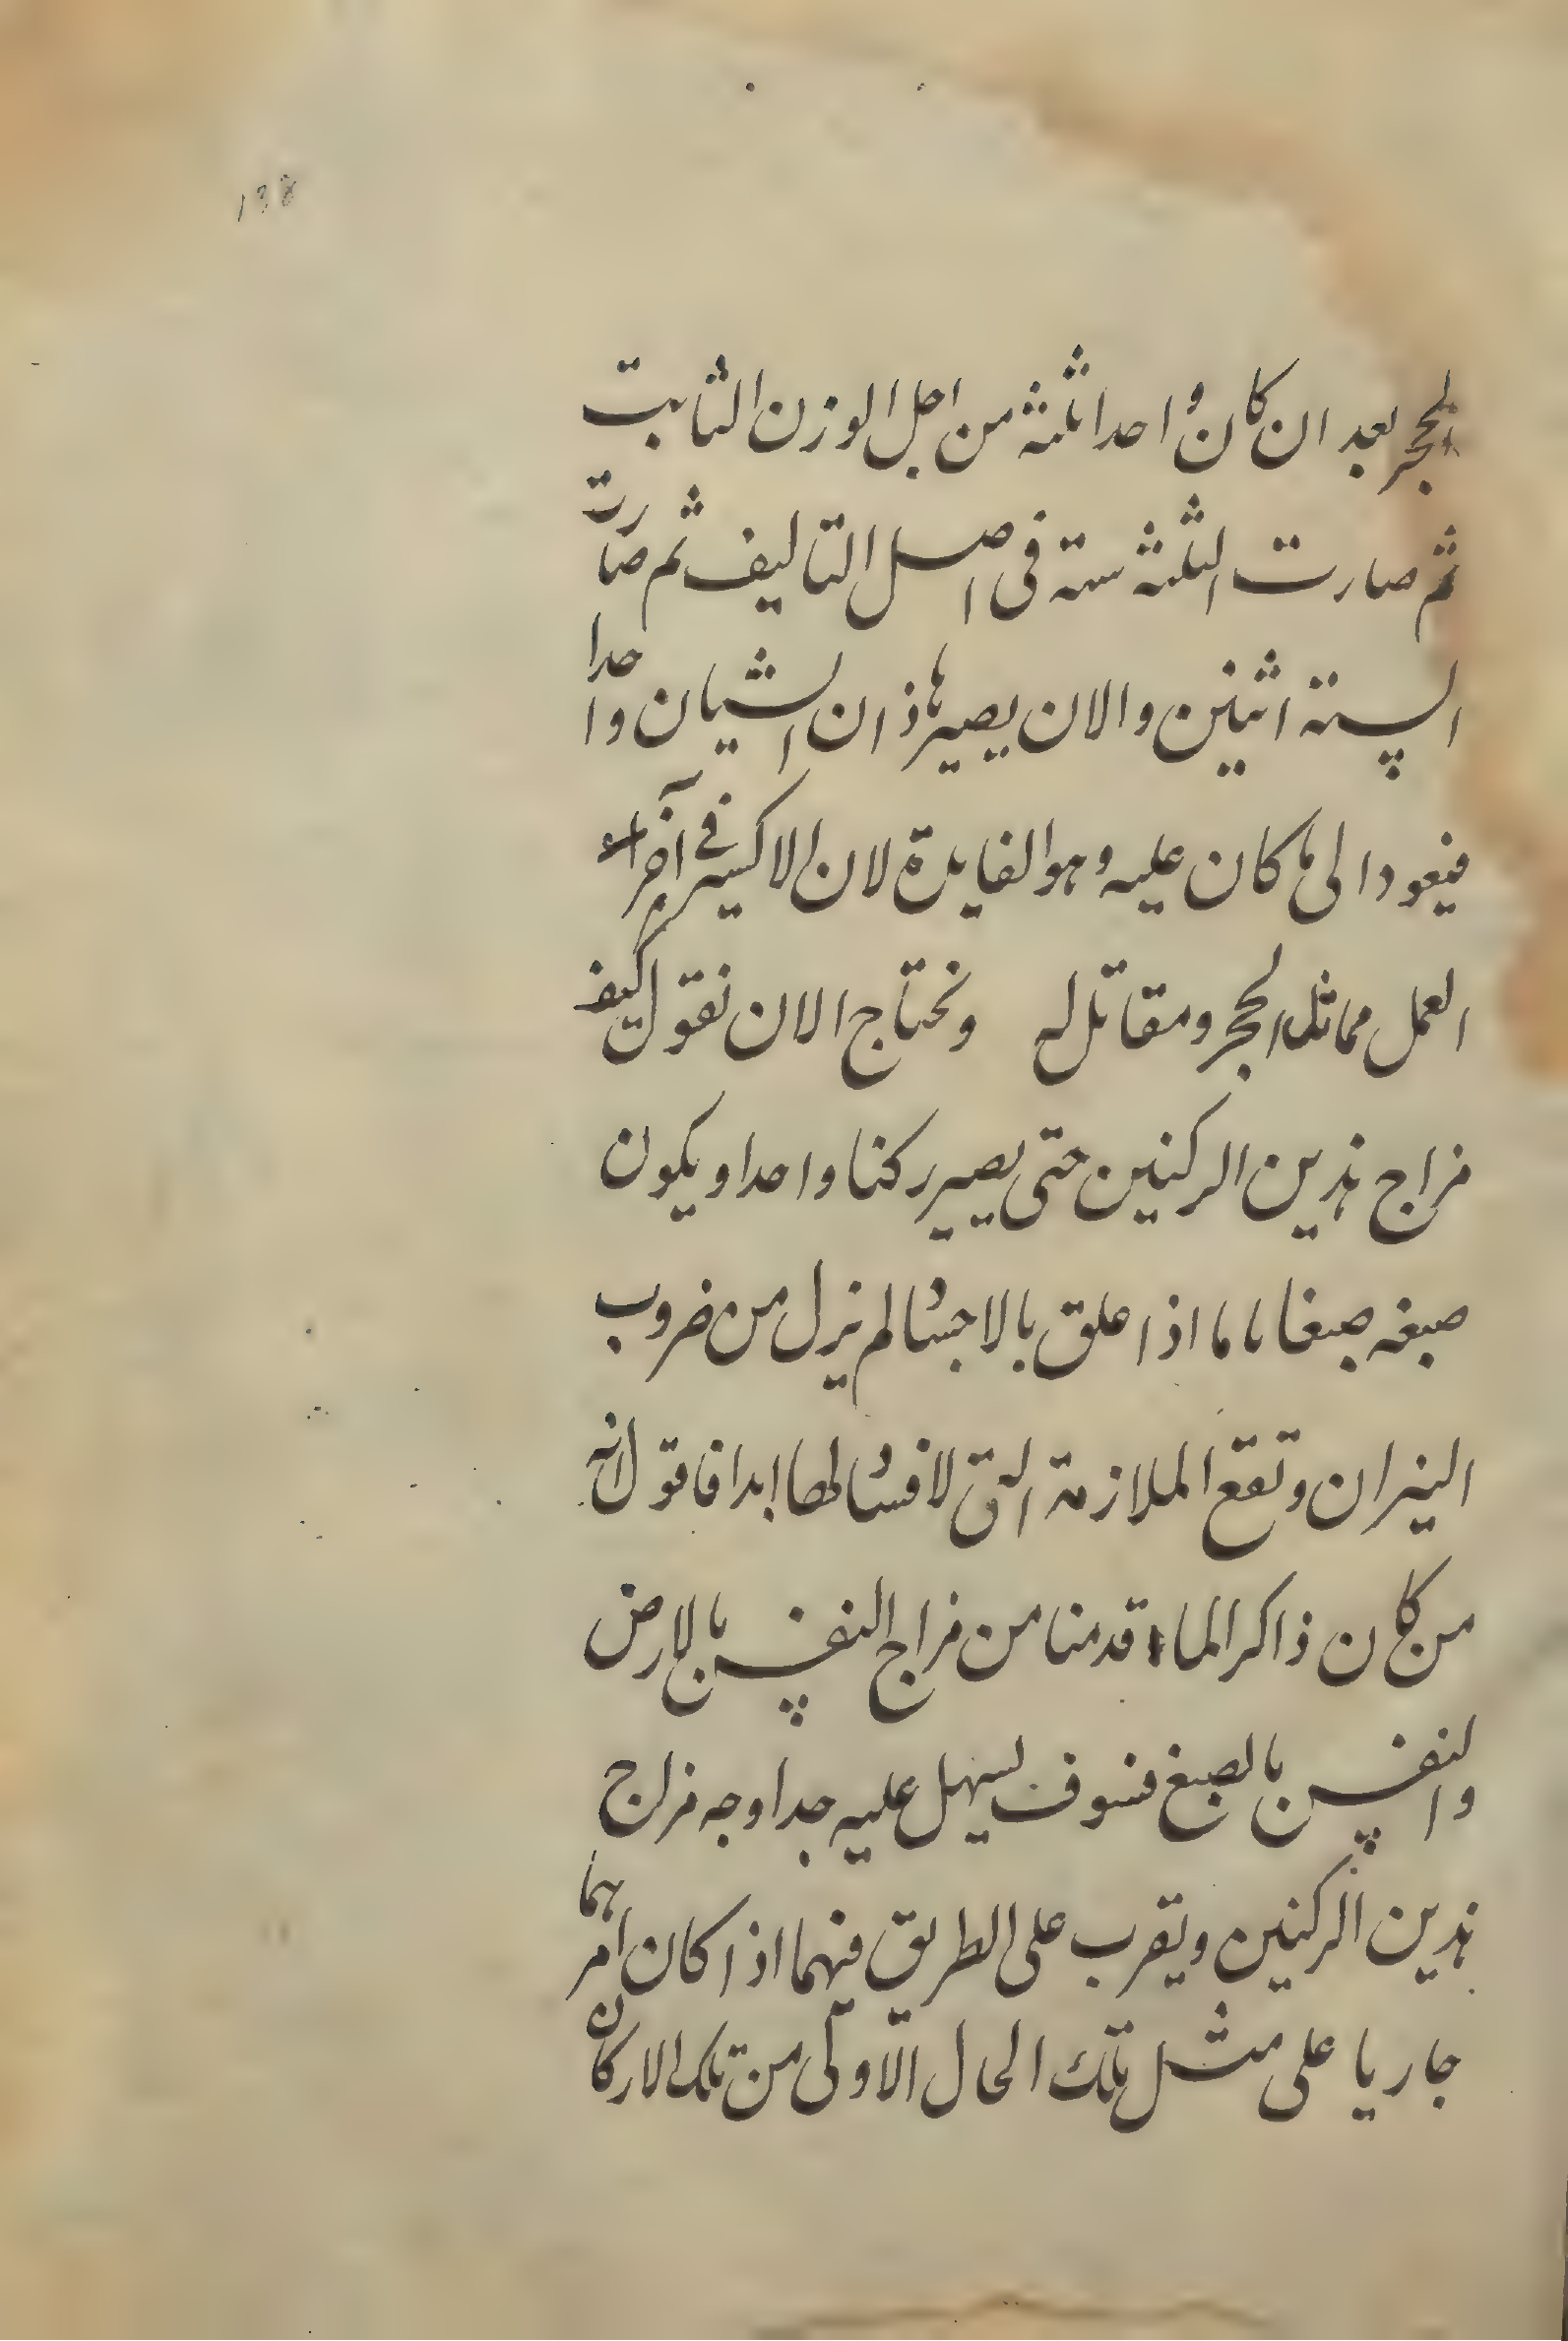 138
الحجر بعد ان كان واحدا ثلثة من اجل الوزن الثابت
ثم صارت الثلثة ستة فى اصل التاليف ثم صارت
الستة اثنين والان يصير هاذان الشيان واحدا
فيعود الى ما كان عليه وهو الفايدة لان الاكسير فى آخر
العمل مماثل الحجر ومقاتل له ونحتاج الان نقول كيف
مزاج هذين الركنين حتى يصير ركنا واحدا ويكون
صبغه صبغا ما اذا علق بالاجسام لم يزل من ضروب
النيران وتقع الملازمة التى لا فساد لها ابدا فاقول انه
من كان ذاكرا لما قدمنا من مزاج النفس بالارض
والنفس بالصبغ فسوف يسهل عليه جدا وجه مزاج
هذين الركنين ويقرب على الطريق فيهما اذا كان امرهما
جاريا على مثل تلك الحال الاولى من تلك الاركان